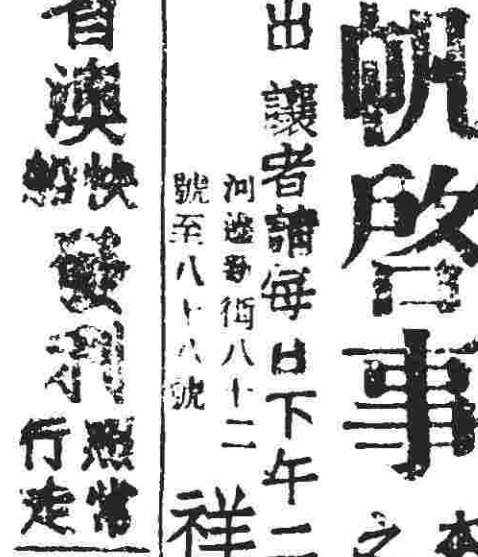 帆啓事
本
之
出讓者請每日下午二
河邊新街八十二
號至八十八號
祥
自澳
快船
發利
照常
行走